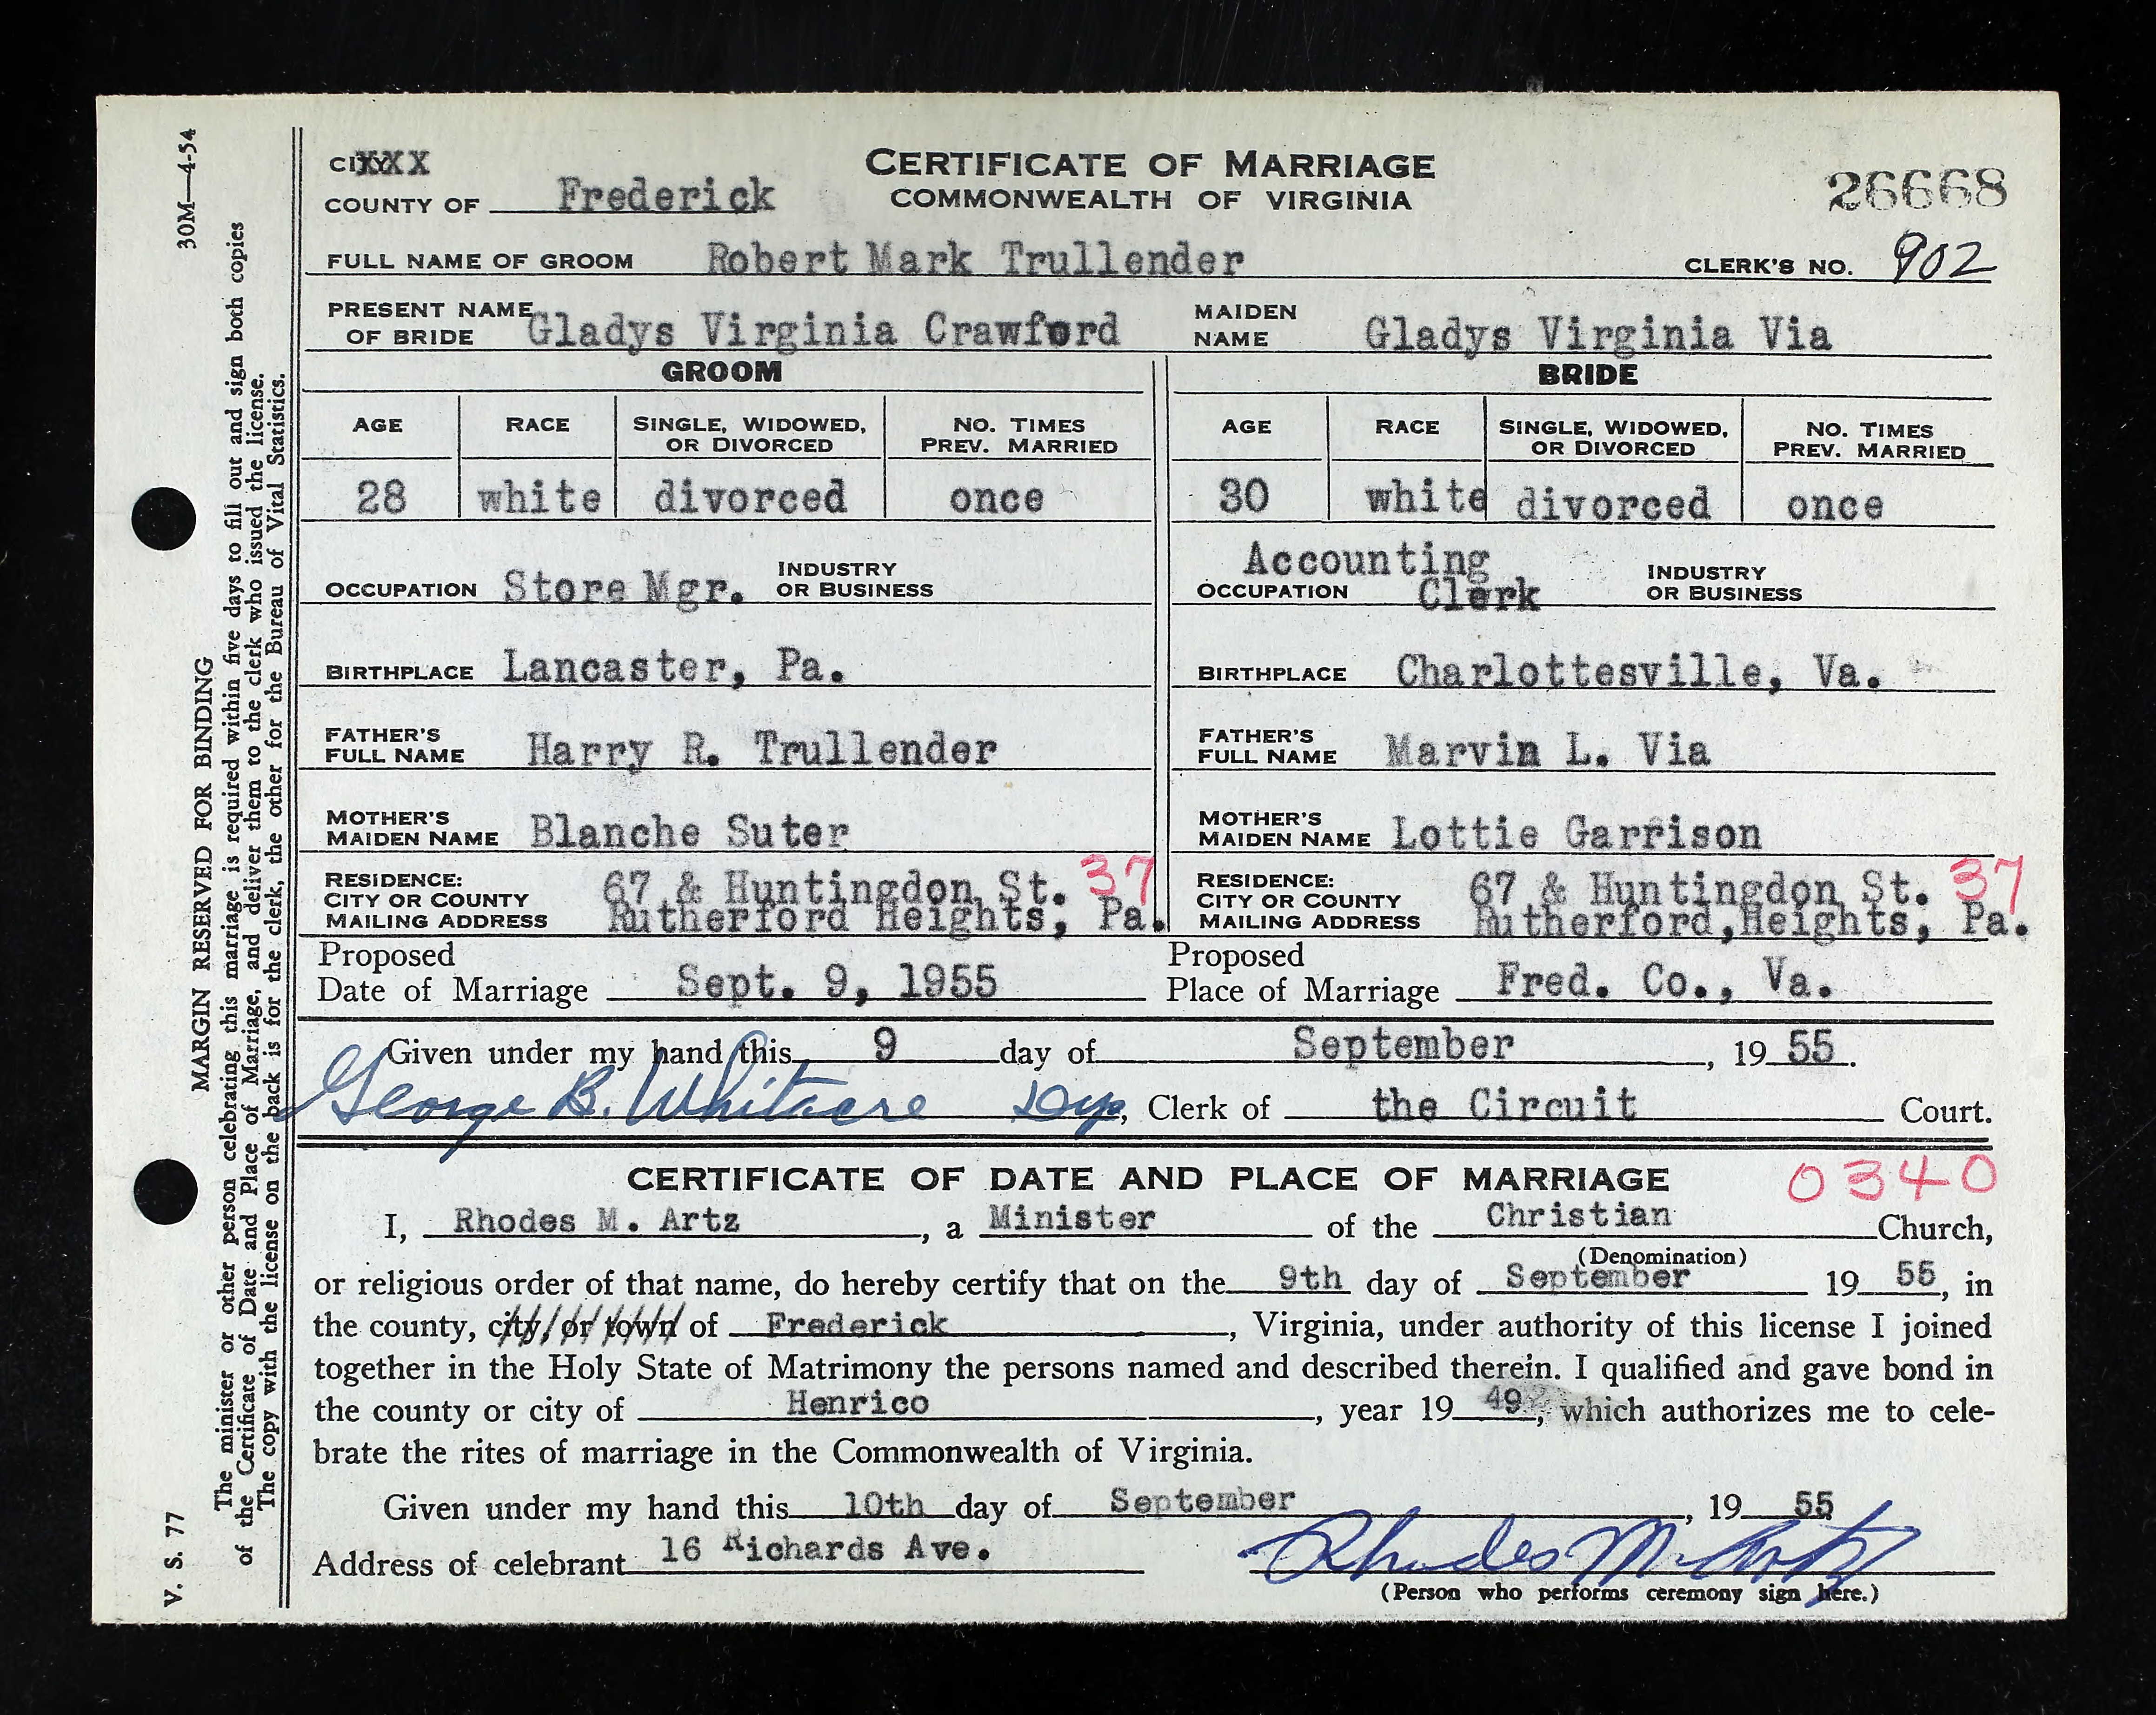 30M—4-54
MARGIN RESERVED FOR BINDING
The minister or other person celebrating this marriage is required within five days to fill out and sign both copies
of the Certificate of Date and Place of Marriage, and deliver them to the clerk who issued the license.
The copy with the license on the back is for the clerk, the other for the Bureau of Vital Statistics.
V. S. 77
CITY XXX
COUNTY OF Frederick
CERTIFICATE OF MARRIAGE
COMMONWEALTH OF VIRGINIA
26668
FULL NAME OF GROOM Robert Mark Trullender CLERK'S NO. 902
PRESENT NAME OF BRIDE Gladys Virginia Crawford MAIDEN NAME Gladys Virginia Via
GROOM BRIDE
AGE RACE SINGLE, WIDOWED, OR DIVORCED NO. TIMES PREV. MARRIED AGE RACE SINGLE, WIDOWED, OR DIVORCED NO. TIMES PREV. MARRIED
28 white divorced once 30 white divorced once
OCCUPATION Store Mgr. INDUSTRY OR BUSINESS OCCUPATION Accounting Clerk INDUSTRY OR BUSINESS
BIRTHPLACE Lancaster, Pa. BIRTHPLACE Charlottesville, Va.
FATHER'S FULL NAME Harry R. Trullender FATHER'S FULL NAME Marvin L. Via
MOTHER'S MAIDEN NAME Blanche Suter MOTHER'S MAIDEN NAME Lottie Garrison
RESIDENCE: CITY OR COUNTY MAILING ADDRESS 67 & Huntingdon St. 37 Rutherford Heights, Pa. RESIDENCE: CITY OR COUNTY MAILING ADDRESS 67 & Huntingdon St. 37 Rutherford,Heights, Pa.
Proposed Date of Marriage Sept. 9, 1955 Proposed Place of Marriage Fred. Co., Va.
Given under my hand this 9 day of September, 19 55.
George B. Whitacre Dep, Clerk of the Circuit Court.
CERTIFICATE OF DATE AND PLACE OF MARRIAGE 0340
I, Rhodes M. Artz, a Minister of the Christian Church,
(Denomination)
or religious order of that name, do hereby certify that on the 9th day of September 19 55, in
the county, city, or town of Frederick, Virginia, under authority of this license I joined
together in the Holy State of Matrimony the persons named and described therein. I qualified and gave bond in
the county or city of Henrico, year 19 49, which authorizes me to cele-
brate the rites of marriage in the Commonwealth of Virginia.
Given under my hand this 10th day of September, 19 55
Address of celebrant 16 Richards Ave. Rhodes M. Artz
(Person who performs ceremony sign here.)